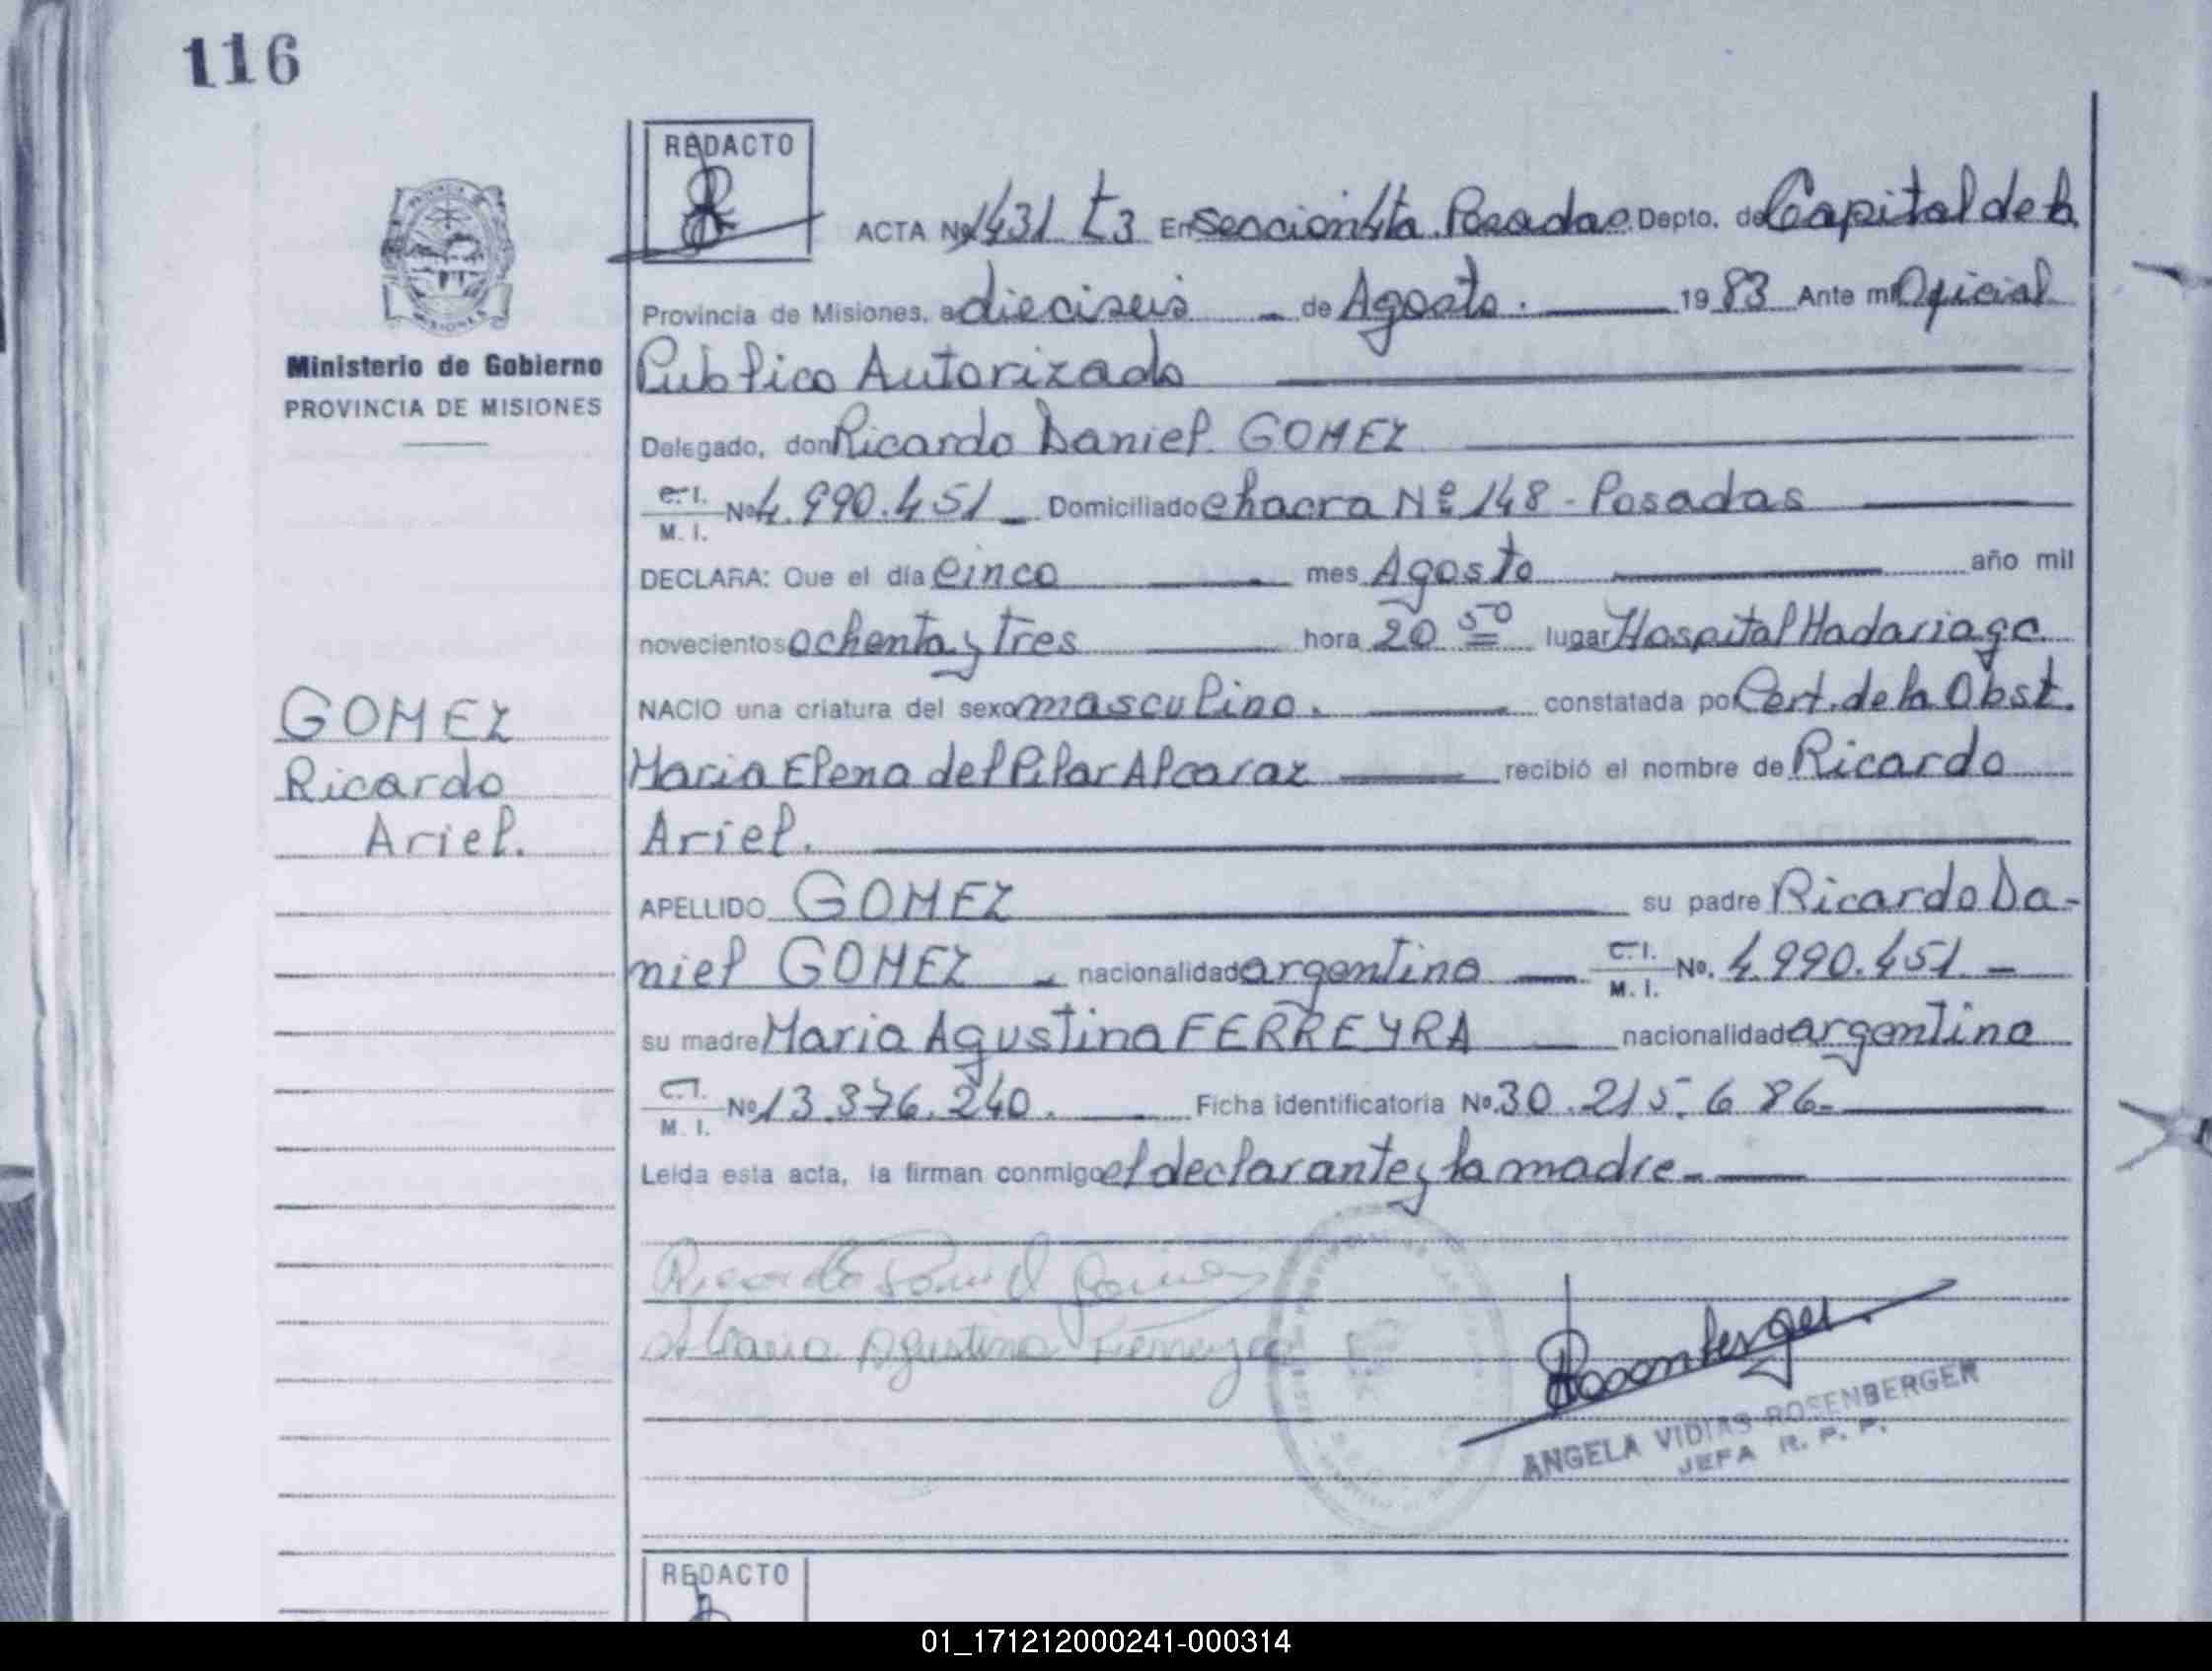 116
REDACTO
ACTA Nº 1431 t3 En Seccion 4ta. Posadas Depto. de Capital de la
Provincia de Misiones, a dieciseis - de Agosto. 1983 Ante mi Oficial
Publico Autorizado
Ministerio de Gobierno
PROVINCIA DE MISIONES
Delegado, don Ricardo Daniel GOMEZ
C.I. M.I. Nº 4.990.451 - Domiciliado chacra Nº 148 - Posadas
DECLARA: Que el día cinco mes Agosto año mil
novecientos ochenta y tres hora 20 50 lugar Hospital Madariaga
NACIO una criatura del sexo masculino. constatada por Cert. de la Obst.
Maria Elena del Pilar Alcaraz recibió el nombre de Ricardo
Ariel.
GOMEZ
Ricardo
Ariel.
APELLIDO GOMEZ su padre Ricardo Da-
niel GOMEZ - nacionalidad argentina C.I. M.I. No. 4.990.451 -
su madre Maria Agustina FERREYRA nacionalidad argentina
C.I. M.I. Nº 13.376.240. Ficha identificatoria Nº 30.215.686-
Leida esta acta, la firman conmigo el declarante y la madre -
Ricardo Daniel Gomez
Maria Agustina Ferreyra
Rosenberger
ANGELA VIDIAS ROSENBERGER
JEFA R. P. P.
REDACTO
01_171212000241-000314